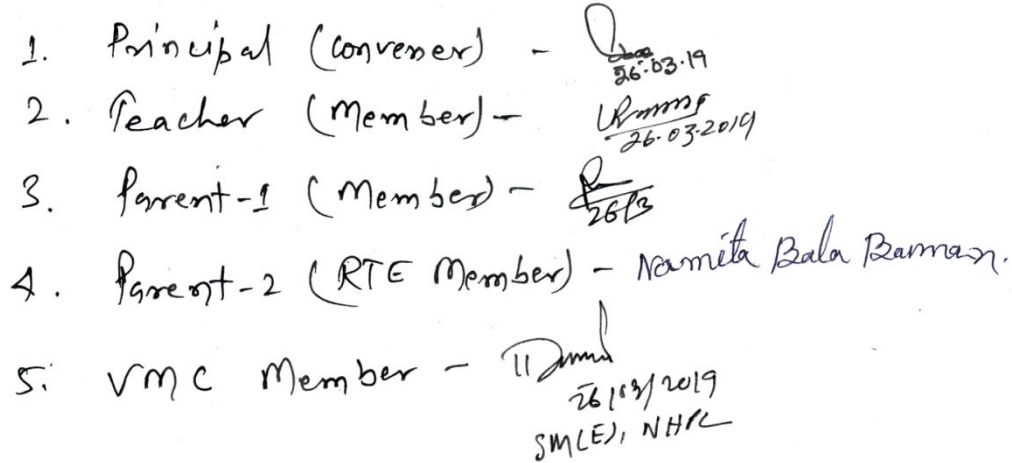 1. Principal (Convener) -
26.03.19
2. Teacher (Member) -
26.03.2019
3. Parent-1 (Member) -
26/3
4. Parent-2 (RTE Member) - Namita Bala Barman.
5. VMC Member -
26/03/2019
SM(E), NHPC